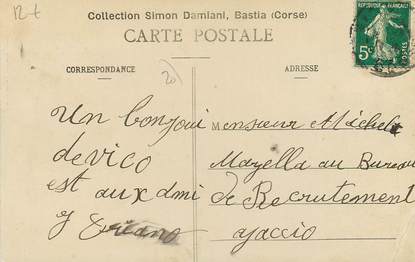 12 t
Collection Simon Damiani, Bastia (Corse)
CARTE POSTALE
CORRESPONDANCE
ADRESSE
20
REPUBLIQUE FRANÇAISE
5c
POSTES
Un bonjoui
de vico
est aux ami
Monsieur Máchel
Mazella au Bureau
de Recrutement
ajaccio